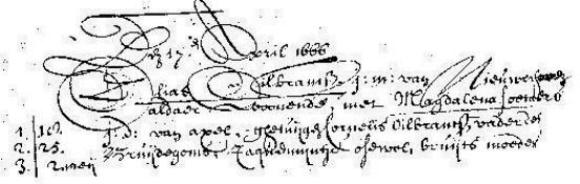 Den 17.e April 1666
Elias Oilbrantsz j: m: van Nieuwer
aldaer woonende, met Magdalena
1. 18. j: d: van axel, ghetuijge Cornelis Oilbrantsz vader des
2. 25. Bruijdegoms, bruijts moeder
3. 2 meij